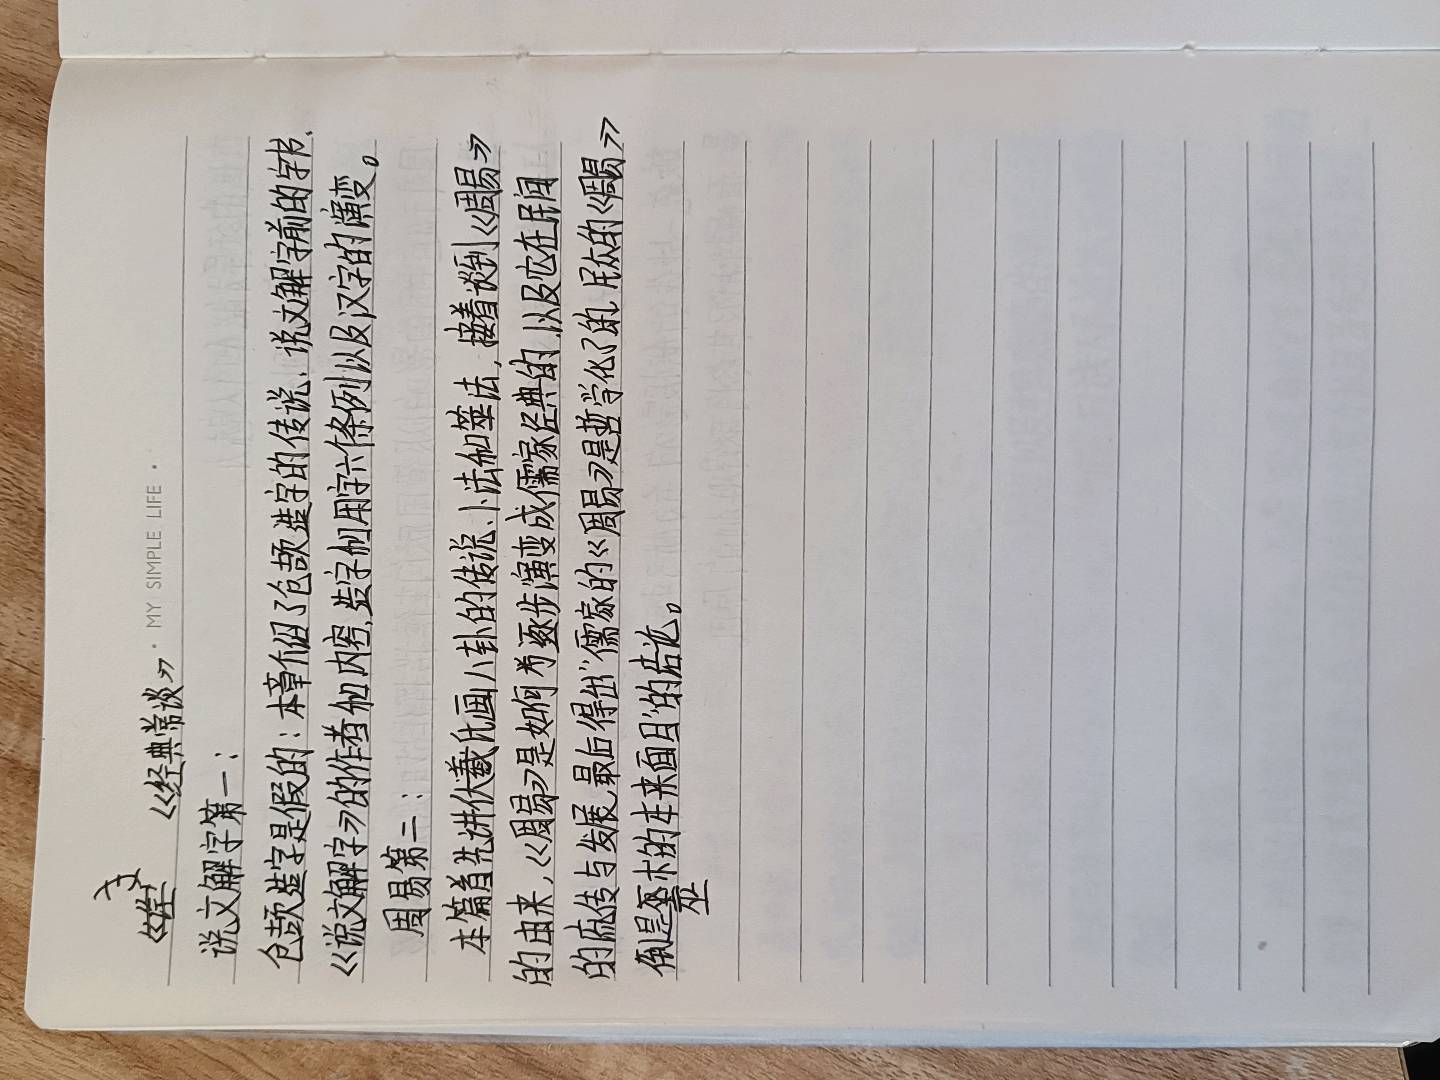 《经典常谈》
· MY SIMPLE LIFE ·
说文解字第一：
仓颉造字是假的：本章介绍了仓颉造字的传说、说文解字前的字书、
《说文解字》的作者和内容，造字和用字六个条例以及汉字的演变。
周易第二：
本篇首先讲伏羲氏画八卦的传说、卜法和筮法，接着谈到《周易》
的由来，《周易》是如何为逐步演变成儒家经典的，以及它在民间
的流传与发展，最后得出“儒家的《周易》是哲学化了的，民众的《周易》
倒是巫术的本来面目”的结论。
巫